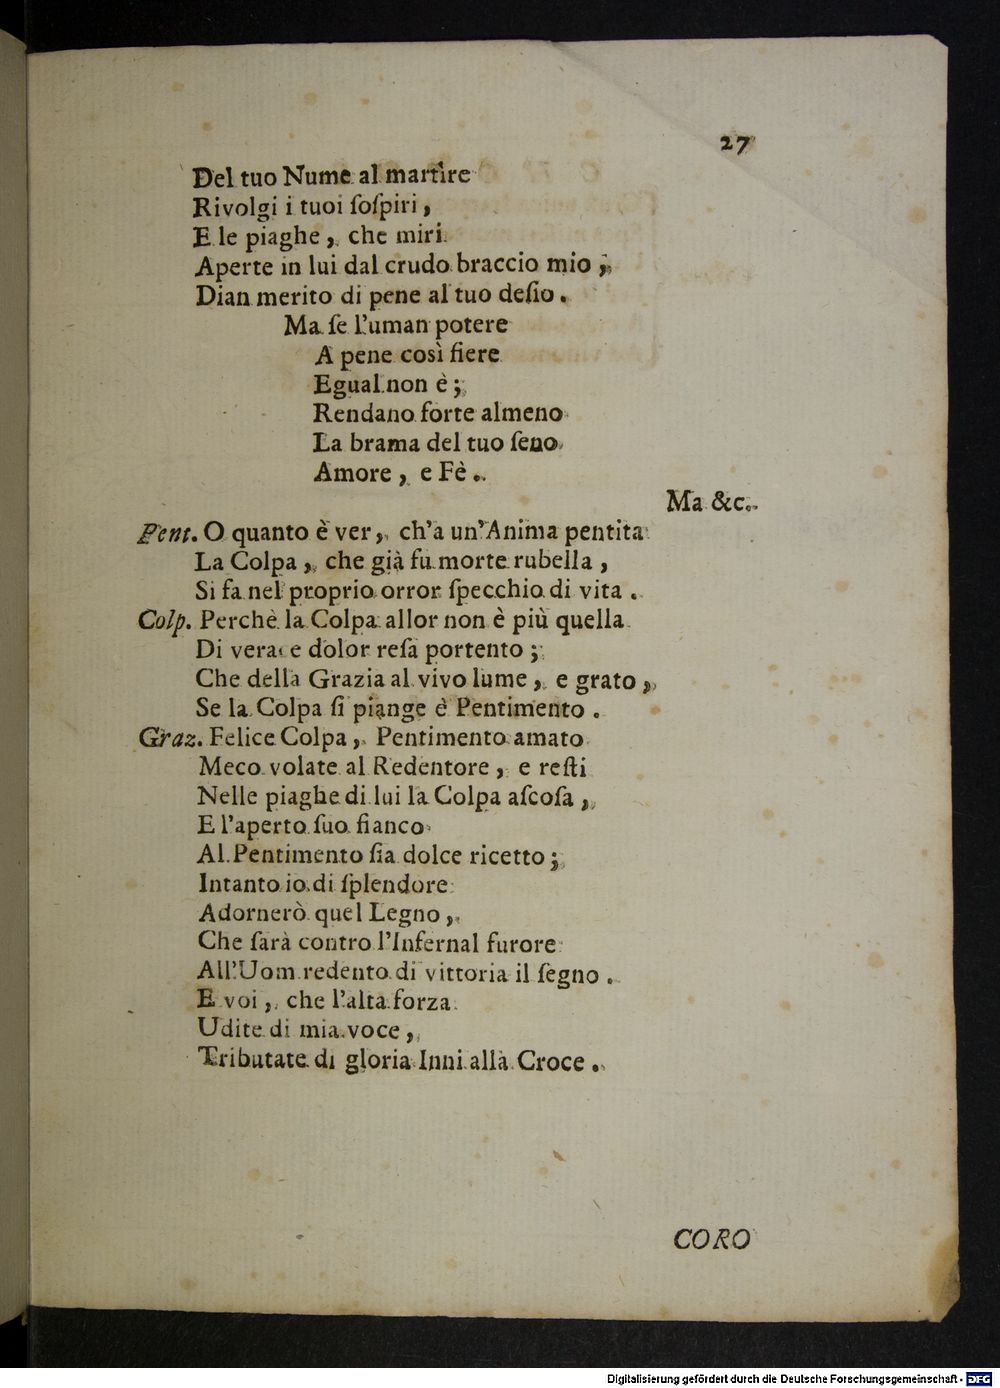 27
Del tuo Nume al martire
Rivolgi i tuoi ſoſpiri,
E le piaghe, che miri
Aperte in lui dal crudo braccio mio,
Dian merito di pene al tuo deſio.
Ma ſe l'uman potere
A pene così fiere
Egual non è;
Rendano forte almeno
La brama del tuo ſeno
Amore, e Fè.
Ma &c.
Pent. O quanto è ver, ch'a un'Anima pentita
La Colpa, che già fu morte rubella,
Si fa nel proprio orror ſpecchio di vita.
Colp. Perchè la Colpa allor non è più quella
Di verace dolor reſa portento;
Che della Grazia al vivo lume, e grato,
Se la Colpa ſi piange è Pentimento.
Graz. Felice Colpa, Pentimento amato
Meco volate al Redentore, e reſti
Nelle piaghe di lui la Colpa aſcoſa,
E l'aperto ſuo fianco
Al Pentimento ſia dolce ricetto;
Intanto io di ſplendore
Adornerò quel Legno,
Che ſarà contro l'Infernal furore
All'Uom redento di vittoria il ſegno.
E voi, che l'alta forza
Udite di mia voce,
Tributate di gloria Inni alla Croce.
CORO
Digitalisierung gefördert durch die Deutsche Forschungsgemeinschaft - DFG